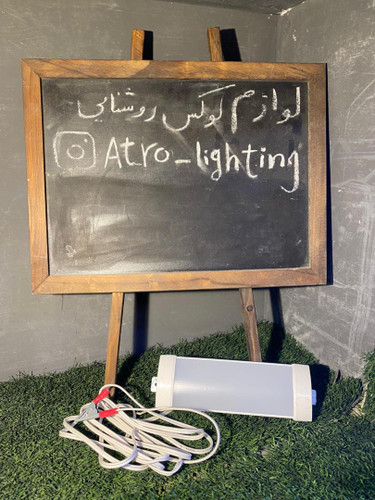 لوازم لوکس روشنایی
Atro_lighting